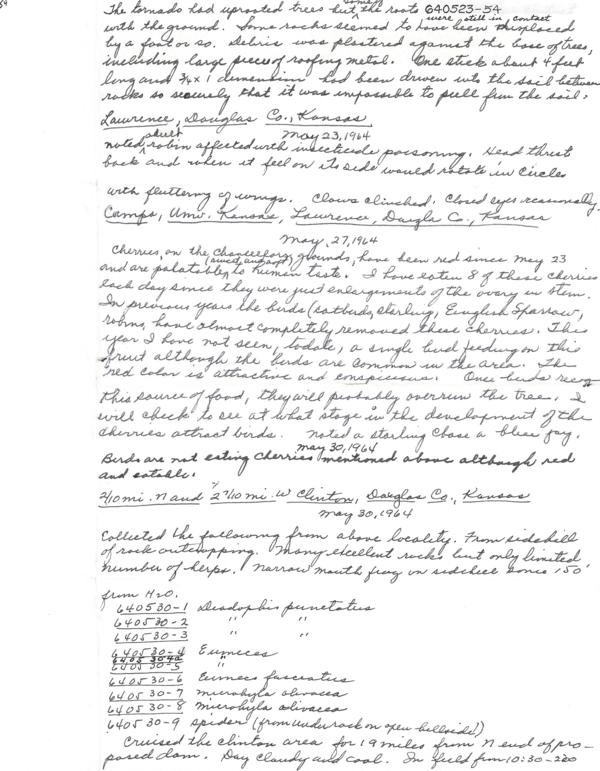 The tornado had uprooted trees but some of the roots were still in contact 640523-54
with the ground. Some rocks seemed to have been displaced
by a foot or so. Debris was plastered against the base of trees,
including large pieces of roofing metal. One stick about 4 feet
long and 3/4 x 1 dimension had been driven into the soil between
rocks so securely that it was impossible to pull from the soil.
Lawrence, Douglas Co., Kansas
May 23, 1964
noted adult robin affected with insecticide poisoning. Head thrust
back and when it fell on its side would rotate in circles
with fluttering of wings. Claws clinched. Closed eyes
Campus, Univ. Kansas, Lawrence, Douglas Co., Kansas
May, 27, 1964
Cherries, on the Chancellors grounds, have been red since May 23
and are palatable to human taste. I have eaten 8 of these cherries
each day since they were just enlargements of the ovary in stem.
In previous years the birds (catbirds, starling, English Sparrow,
robins, have almost completely removed these cherries. This
year I have not seen, todate, a single bird feeding on this
fruit although the birds are common in the area. The
red color is attractive and conspicuous. Once birds
this source of food, they will probably overrun the tree. I
will check to see at what stage in the development of the
cherries attract birds. Noted a starling chase a blue jay.
May 30, 1964
Birds are not eating cherries mentioned above although red
and eatable.
2/10 mi. N and 2 7/10 mi. W Clinton, Douglas Co., Kansas
May 30, 1964
Collected the following from above locality. From sidehill
of rock outcropping. Many excellent rocks but only limited
number of herps. Narrow mouth frog on sidehill some 150'
from H2O.
640530-1 Diadophis punctatus
640530-2 " "
640530-3 " "
640530-4 Eumeces
640530-4a
640530-5 "
640530-6 Eumeces fasciatus
640530-7 Microhyla olivacea
640530-8 Microhyla olivacea
640530-9 spider (from under rock on open hillside)
Cruised the Clinton area for 19 miles from N end of pro-
posed dam. Day cloudy and cool. In field from 10:30-200